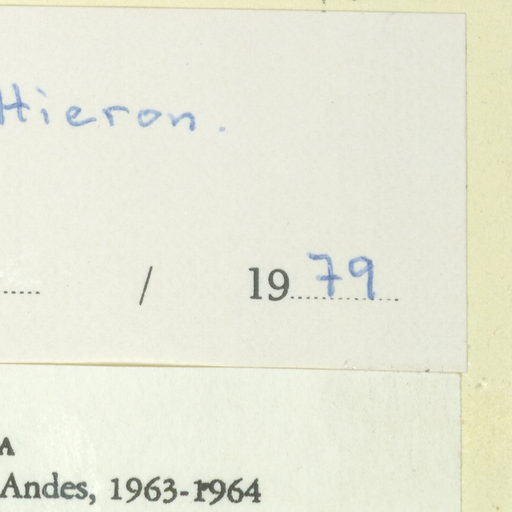 Hieron.
/ 1979
A
Andes, 1963-1964